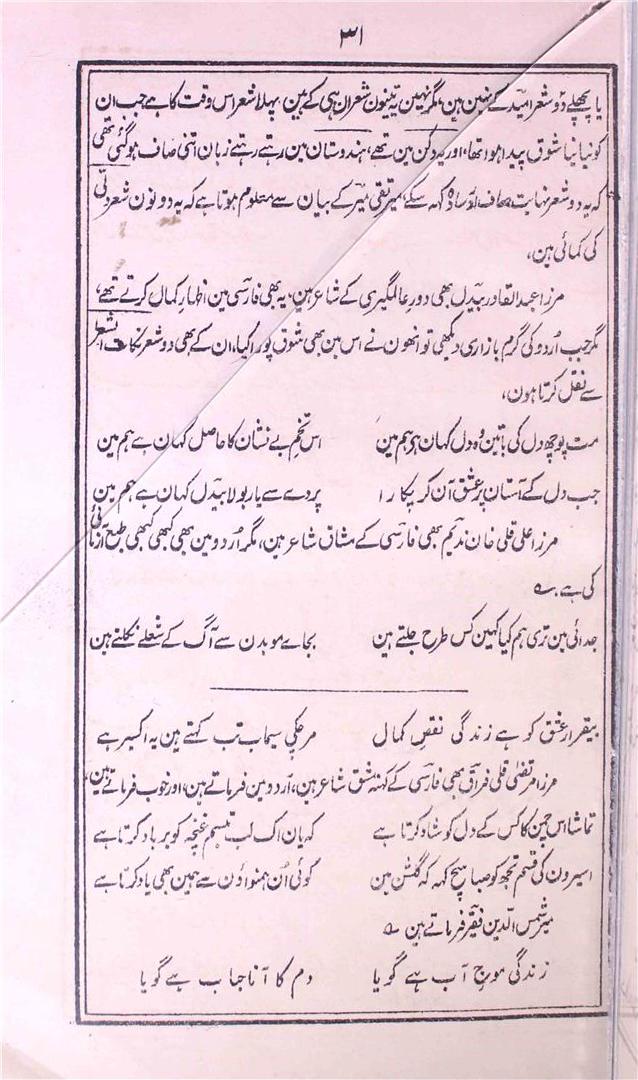 ۳۱
یا پچھلے دو شعر امید کے نہین ہین، مگر نہین یہ تینون شعر ان ہی کے ہین، پہلا شعر اس وقت کا ہے جب ان
کو نیا نیا شوق پیدا ہوا تھا، اور یہ دکن مین تھے، ہندوستان مین رہتے رہتے زبان اتنی صاف ہو گئی تھی
کہ یہ دو شعر نہایت صاف اور سادہ کہہ سکے، میر تقی میر کے بیان سے معلوم ہوتا ہے کہ یہ دونون شعر دلی
کی کمائی ہین،
مرزا عبد القادر بیدل بھی دور عالمگیری کے شاعر ہین، یہ بھی فارسی مین اظہار کمال کرتے تھے،
مگر جب اردو کی گرم بازاری دیکھی تو انھون نے اس مین بھی شوق پورا کیا، ان کے بھی دو شعر نکات الشعرا
سے نقل کرتا ہون،
مت پوچھ دل کی باتین وہ دل کہان ہی ہم مین اس تخم بے نشان کا حاصل کہان ہے ہم مین
جب دل کے آستان پر عشق آن کر پکارا پردے سے یار بولا بیدل کہان ہے ہم مین
مرزا علی قلی خان ندیم بھی فارسی کے مشاق شاعر ہین، مگر اردو مین بھی کبھی کبھی طبع آزمائی
کی ہے،
جدائی مین تری ہم کیا کہین کس طرح جلتے ہین بجاے مو بدن سے آگ کے شعلے نکلتے ہین
بیقرار عشق کو ہے زندگی نقص کمال مر چکے سیماب تب کہتے ہین یہ اکسیر ہے
مرزا مرتضی قلی فراق بھی فارسی کے کہنہ مشق شاعر ہین، اردو مین فرماتے ہین، اور خوب فرماتے ہین،
تماشا اس چمن کا کس کے دل کو شاد کرتا ہے کہ یان اک لب تبسم غنچہ کو برباد کرتا ہے
اسیرون کی قسم تجھ کو صبا سچ کہہ کہ گلشن مین کوئی ان ہمنواؤن سے ہمین بھی یاد کرتا ہے
میر شمس الدین فقیر فرماتے ہین
زندگی موج آب ہے گویا دم کا آنا حباب ہے گویا